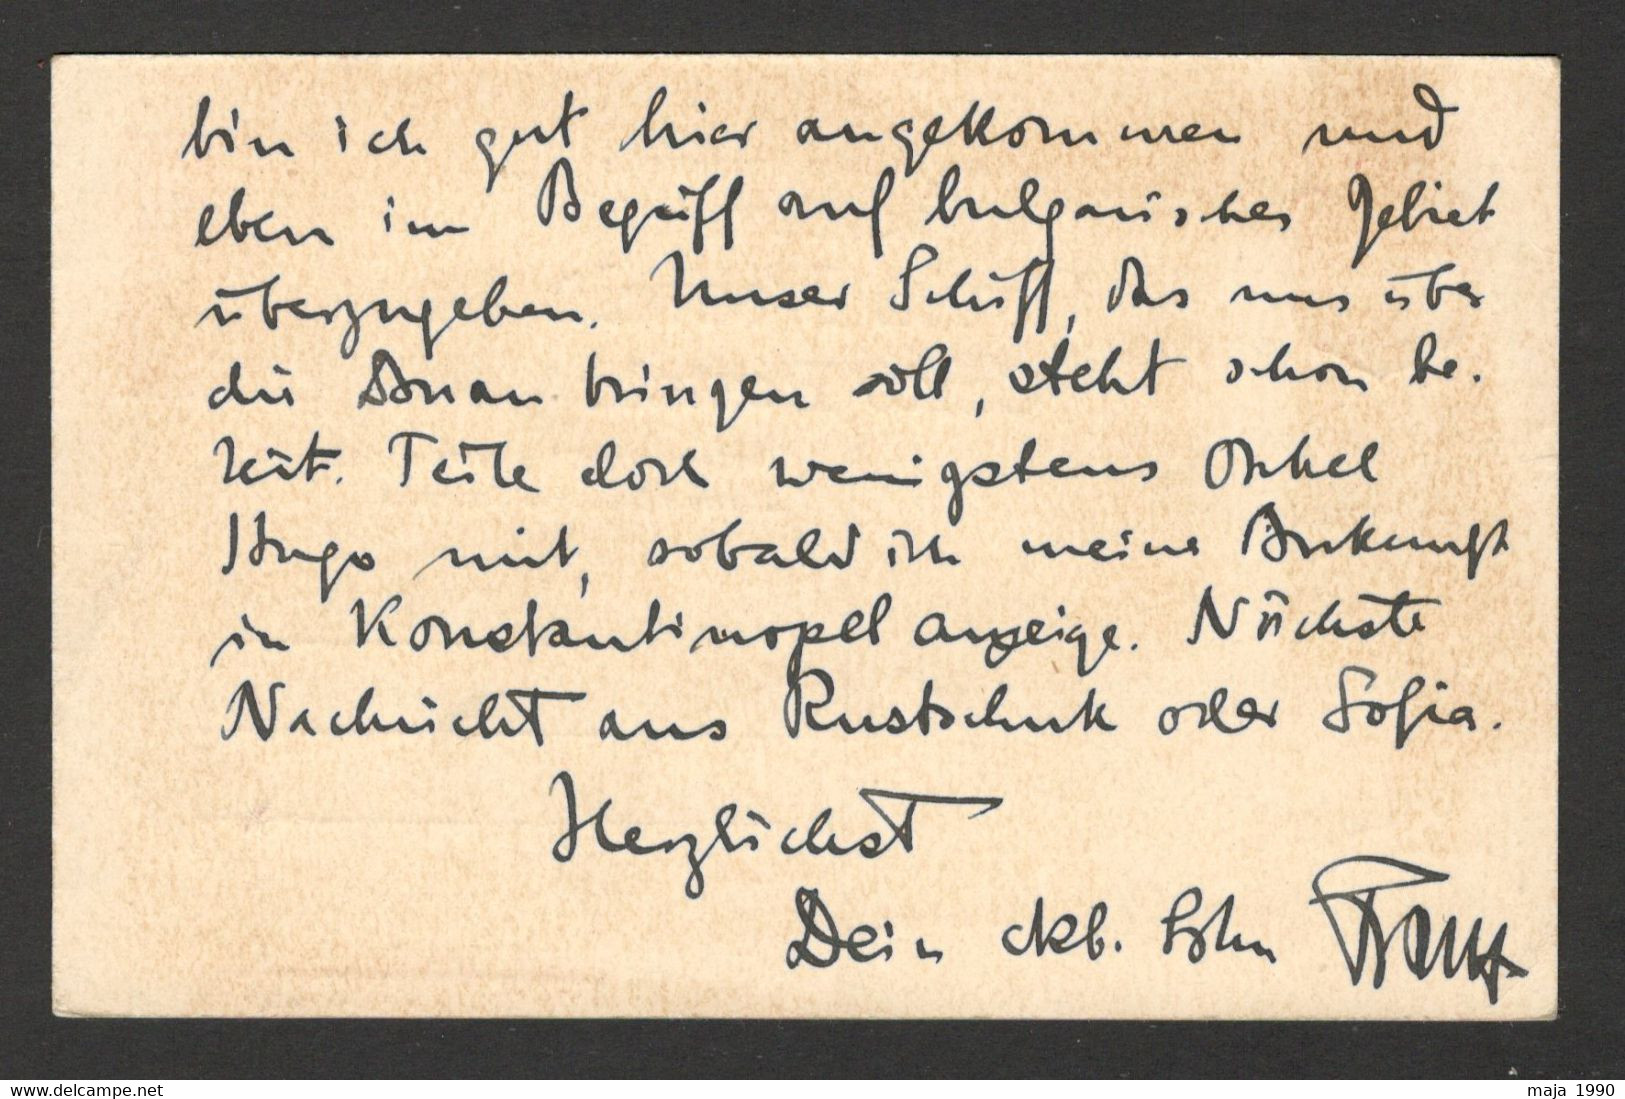 bin ich gut hier angekommen und
eben im Begriff auf bulgarisches Gebiet
überzugehen. Unser Schiff, das uns über
die Donau bringen soll, steht schon be-
reit. Teile doch wenigstens Onkel
Hugo mit, sobald ich meine Ankunft
in Konstantinopel anzeige. Nächste
Nachricht aus Rustschuk oder Sofia.
Herzlichst
Dein dkb. Sohn
www.delcampe.net
maja 1990